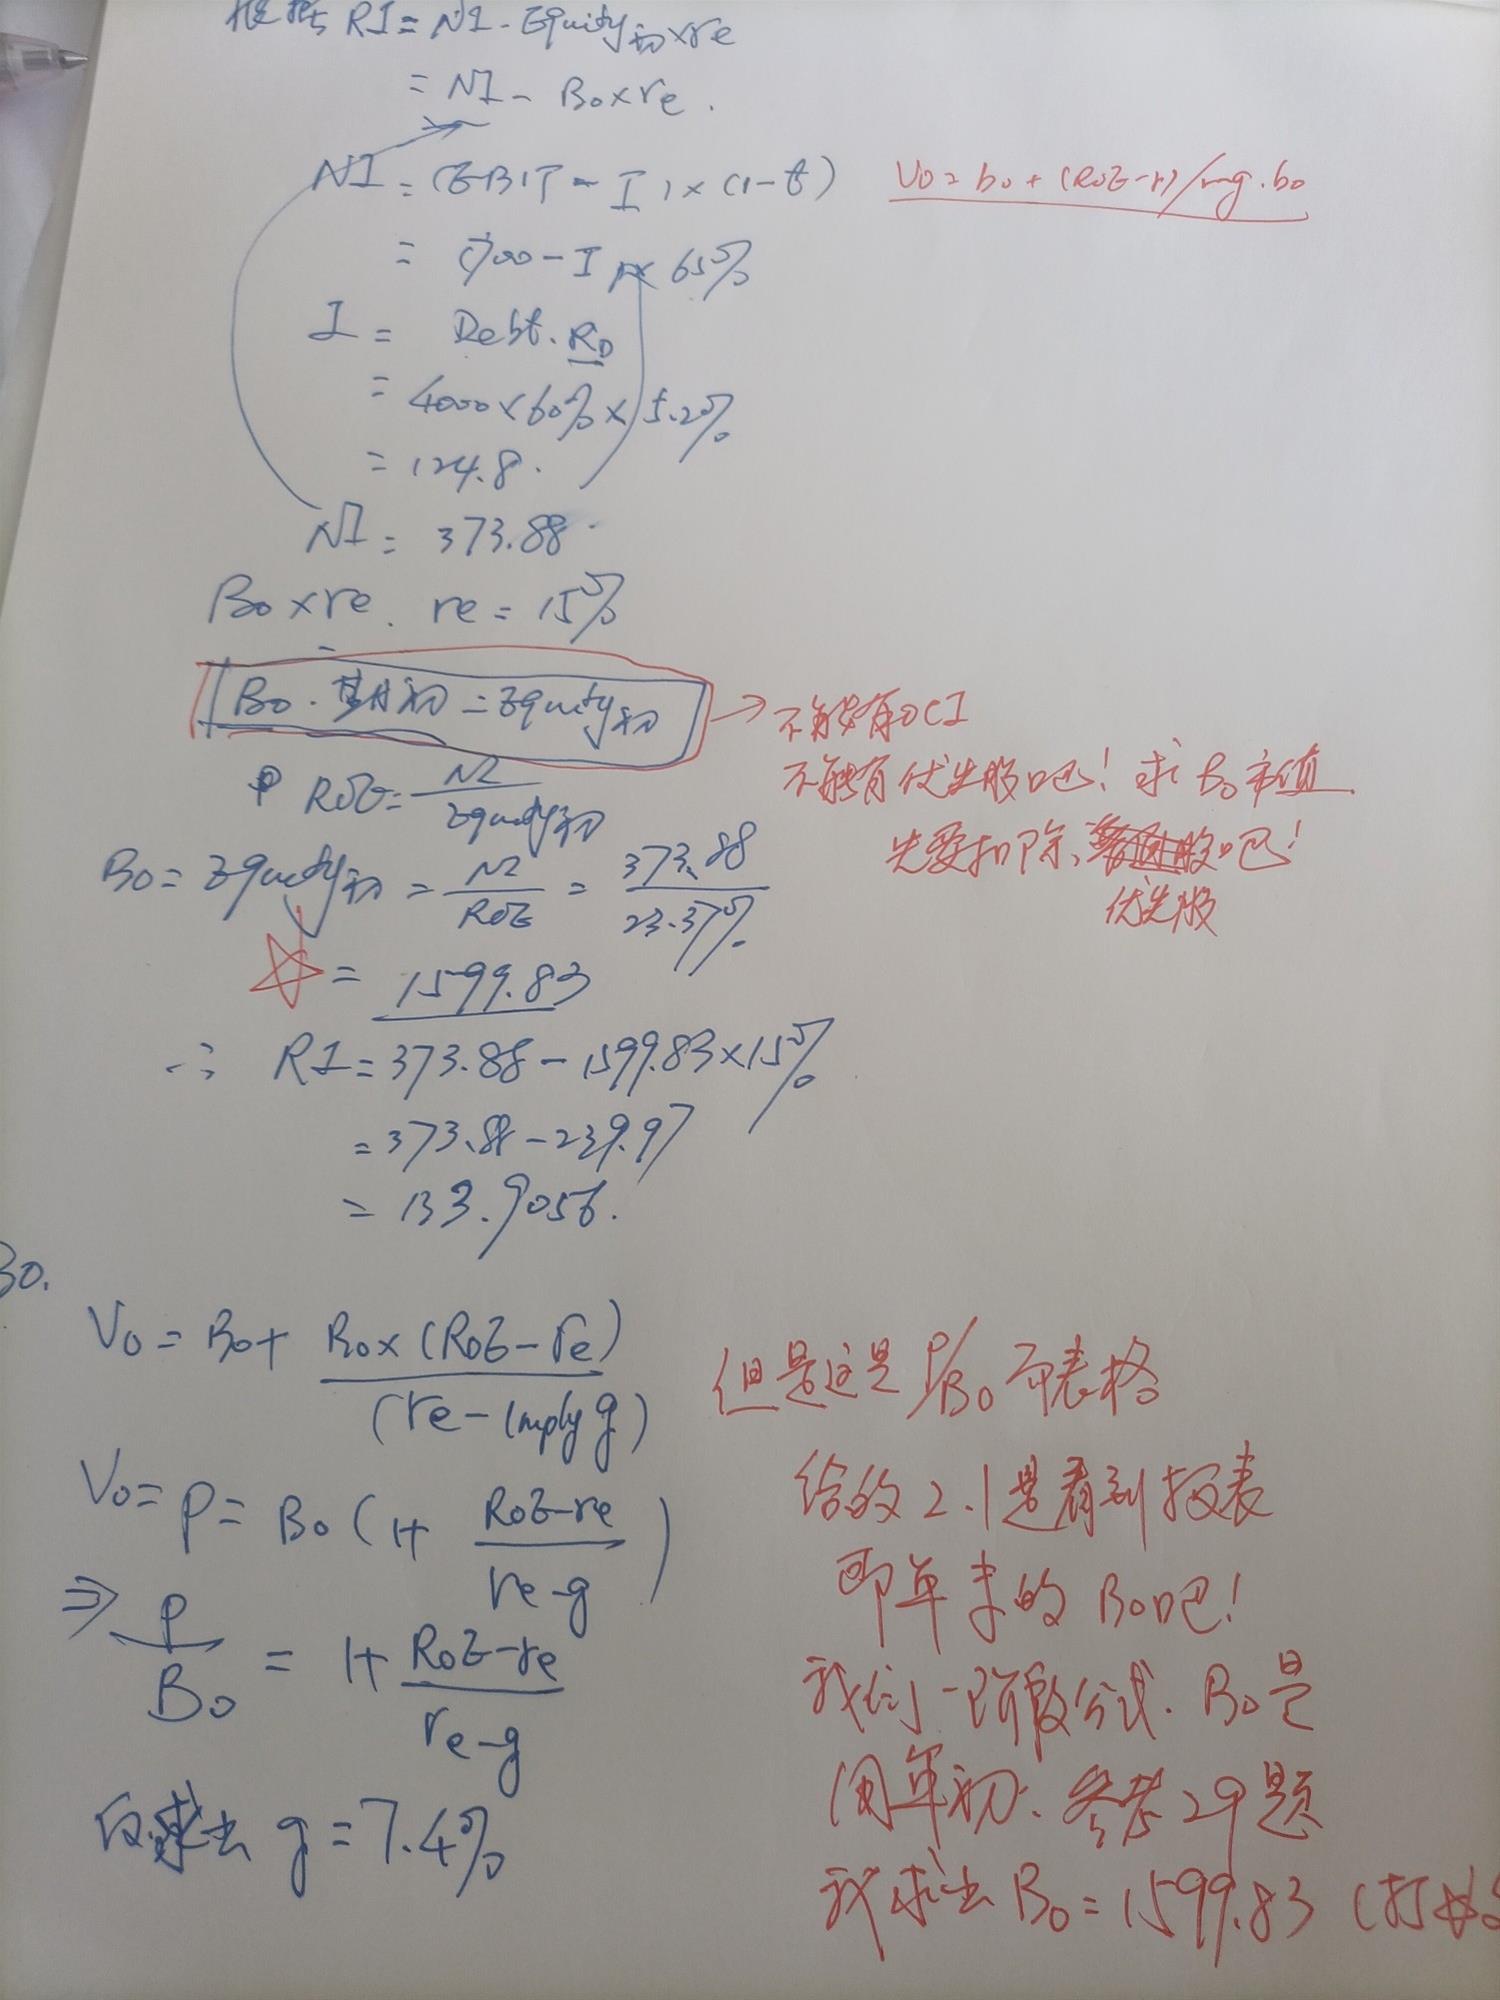 根据 RI = NI - Equity初×re
= NI - B0×re.
NI = (EBIT - I)×(1-t)
V0 = b0 + (ROE-r)/r-g·b0
= (700-I)×65%
I = Debt·RD
= 4000×60%×5.2%
= 124.8.
NI = 373.88.
B0×re. re = 15%
B0·期初 = Equity初
→ 不能有OCI
不能有优先股吧! 求B0市值
先要扣除 股吧!
优先股
ROE = NI / Equity初
B0 = Equity初 = NI/ROE = 373.88/23.37%
☆ = 1599.83
∴ RI = 373.88 - 1599.83×15%
= 373.88 - 239.97
= 133.9056.
30.
V0 = B0 + B0×(ROE-re)/(re-imply g)
V0 = P = B0(1+ (ROE-re)/(re-g))
⇒ P/B0 = 1+ (ROE-re)/(re-g)
反求出 g = 7.4%
但是这是 P/B0 而表格
给的2.1是看到报表
即年末的B0吧!
我们一阶段公式. B0是
用年初. 参考29题
我求出B0 = 1599.83 (打☆